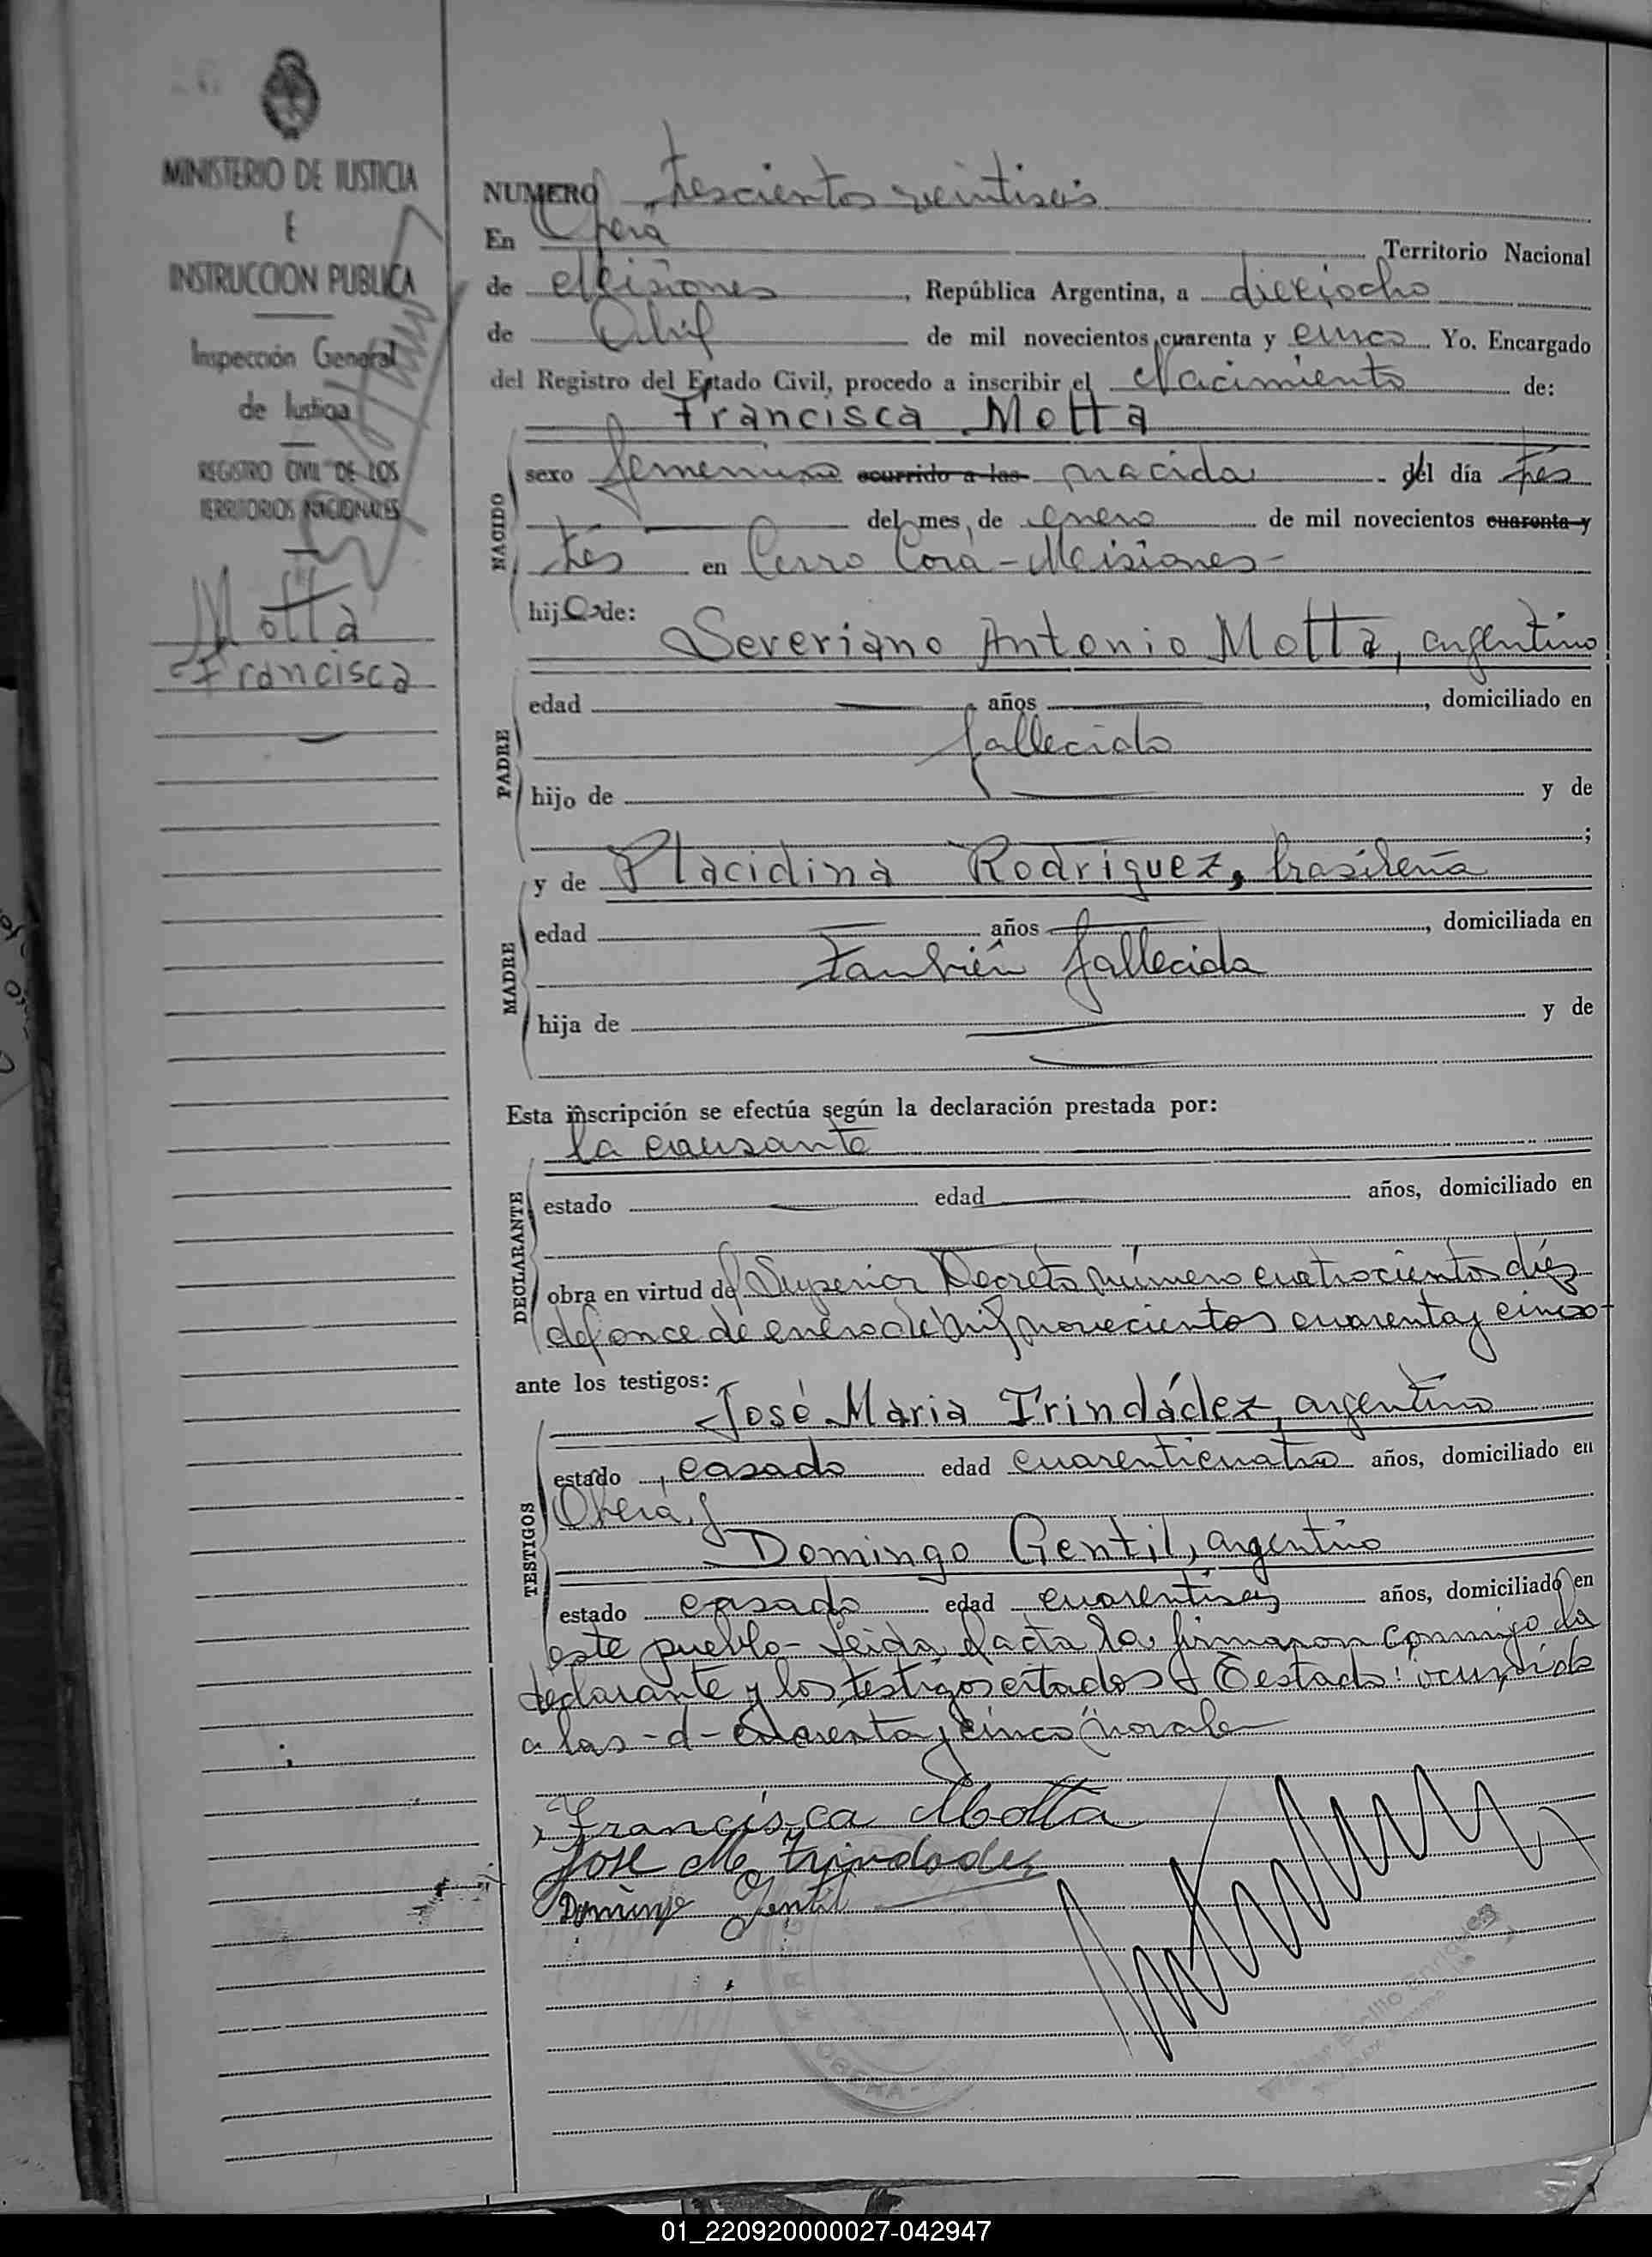 MINISTERIO DE JUSTICIA
E
INSTRUCCION PUBLICA
Inspección General
de Justicia
REGISTRO CIVIL DE LOS
TERRITORIOS NACIONALES
Motta
Francisca
NUMERO trescientos veintiseis
En Oberá Territorio Nacional
de Misiones, República Argentina, a dieciocho
de Abril de mil novecientos cuarenta y cinco Yo. Encargado
del Registro del Estado Civil, procedo a inscribir el Nacimiento de:
Francisca Motta
NACIDO
sexo femenino ocurrido a las nacida del día tres
del mes de enero de mil novecientos cuarenta y
tres en Cerro Corá - Misiones -
hija de:
Severiano Antonio Motta, argentino
PADRE
edad años, domiciliado en
fallecido
hijo de y de
;
y de Placidina Rodriguez, brasileña
MADRE
edad años, domiciliada en
también fallecida
hija de y de
Esta inscripción se efectúa según la declaración prestada por:
la causante
DECLARANTE
estado edad años, domiciliado en
obra en virtud del Superior Decreto número cuatrocientos diez
del once de enero de mil novecientos cuarenta y cinco -
ante los testigos:
José Maria Trindádez, argentino
TESTIGOS
estado, casado edad cuarenticuatro años, domiciliado en
Oberá, y
Domingo Gentil, argentino
estado casado edad cuarentiseis años, domiciliado en
este pueblo - Leida el acta la firmaron conmigo la
declarante y los testigos citados - Testado: ocurrido
a las - d - cuarenta y cinco no vale
Francisca Motta
José M. Trindadez
Domingo Gentil
OBERA
01_220920000027-042947